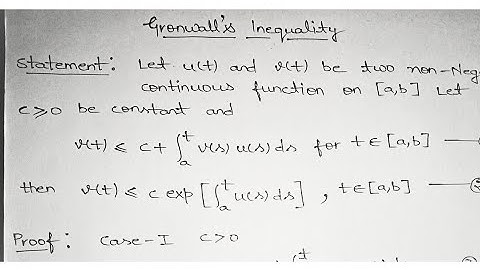 Gronwall's Inequality
Statement: Let u(t) and v(t) be two non-Neg
continuous function on [a,b] Let
c≥0 be constant and
v(t) ≤ c+∫ₐᵗ v(s) u(s) ds for t∈[a,b] —
then v(t) ≤ c exp[∫ₐᵗ u(s) ds] , t∈[a,b] —
Proof: Case-I c>0